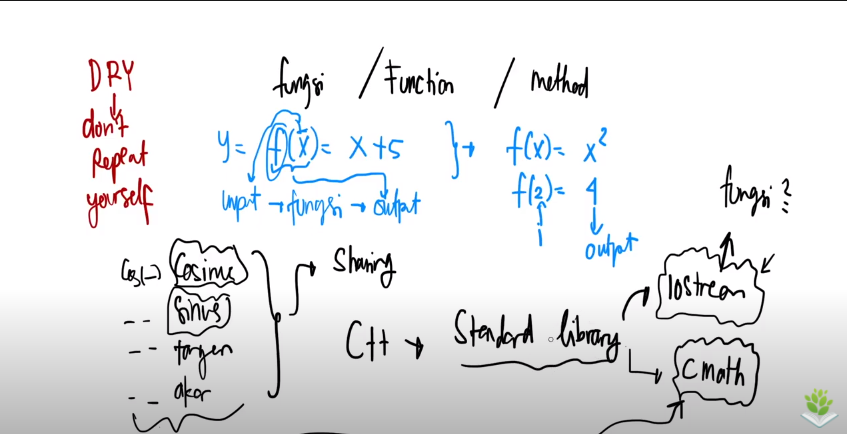 DRY
don't
Repeat
yourself
fungsi / Function / method
y = f(x) = x + 5
input → fungsi → output
f(x) = x²
f(2) = 4
output
fungsi ?
Cos(-) Cosinus
-- Sinus
-- tangen
-- akar
Sharing
C++ → Standard library
Iostream
Cmath